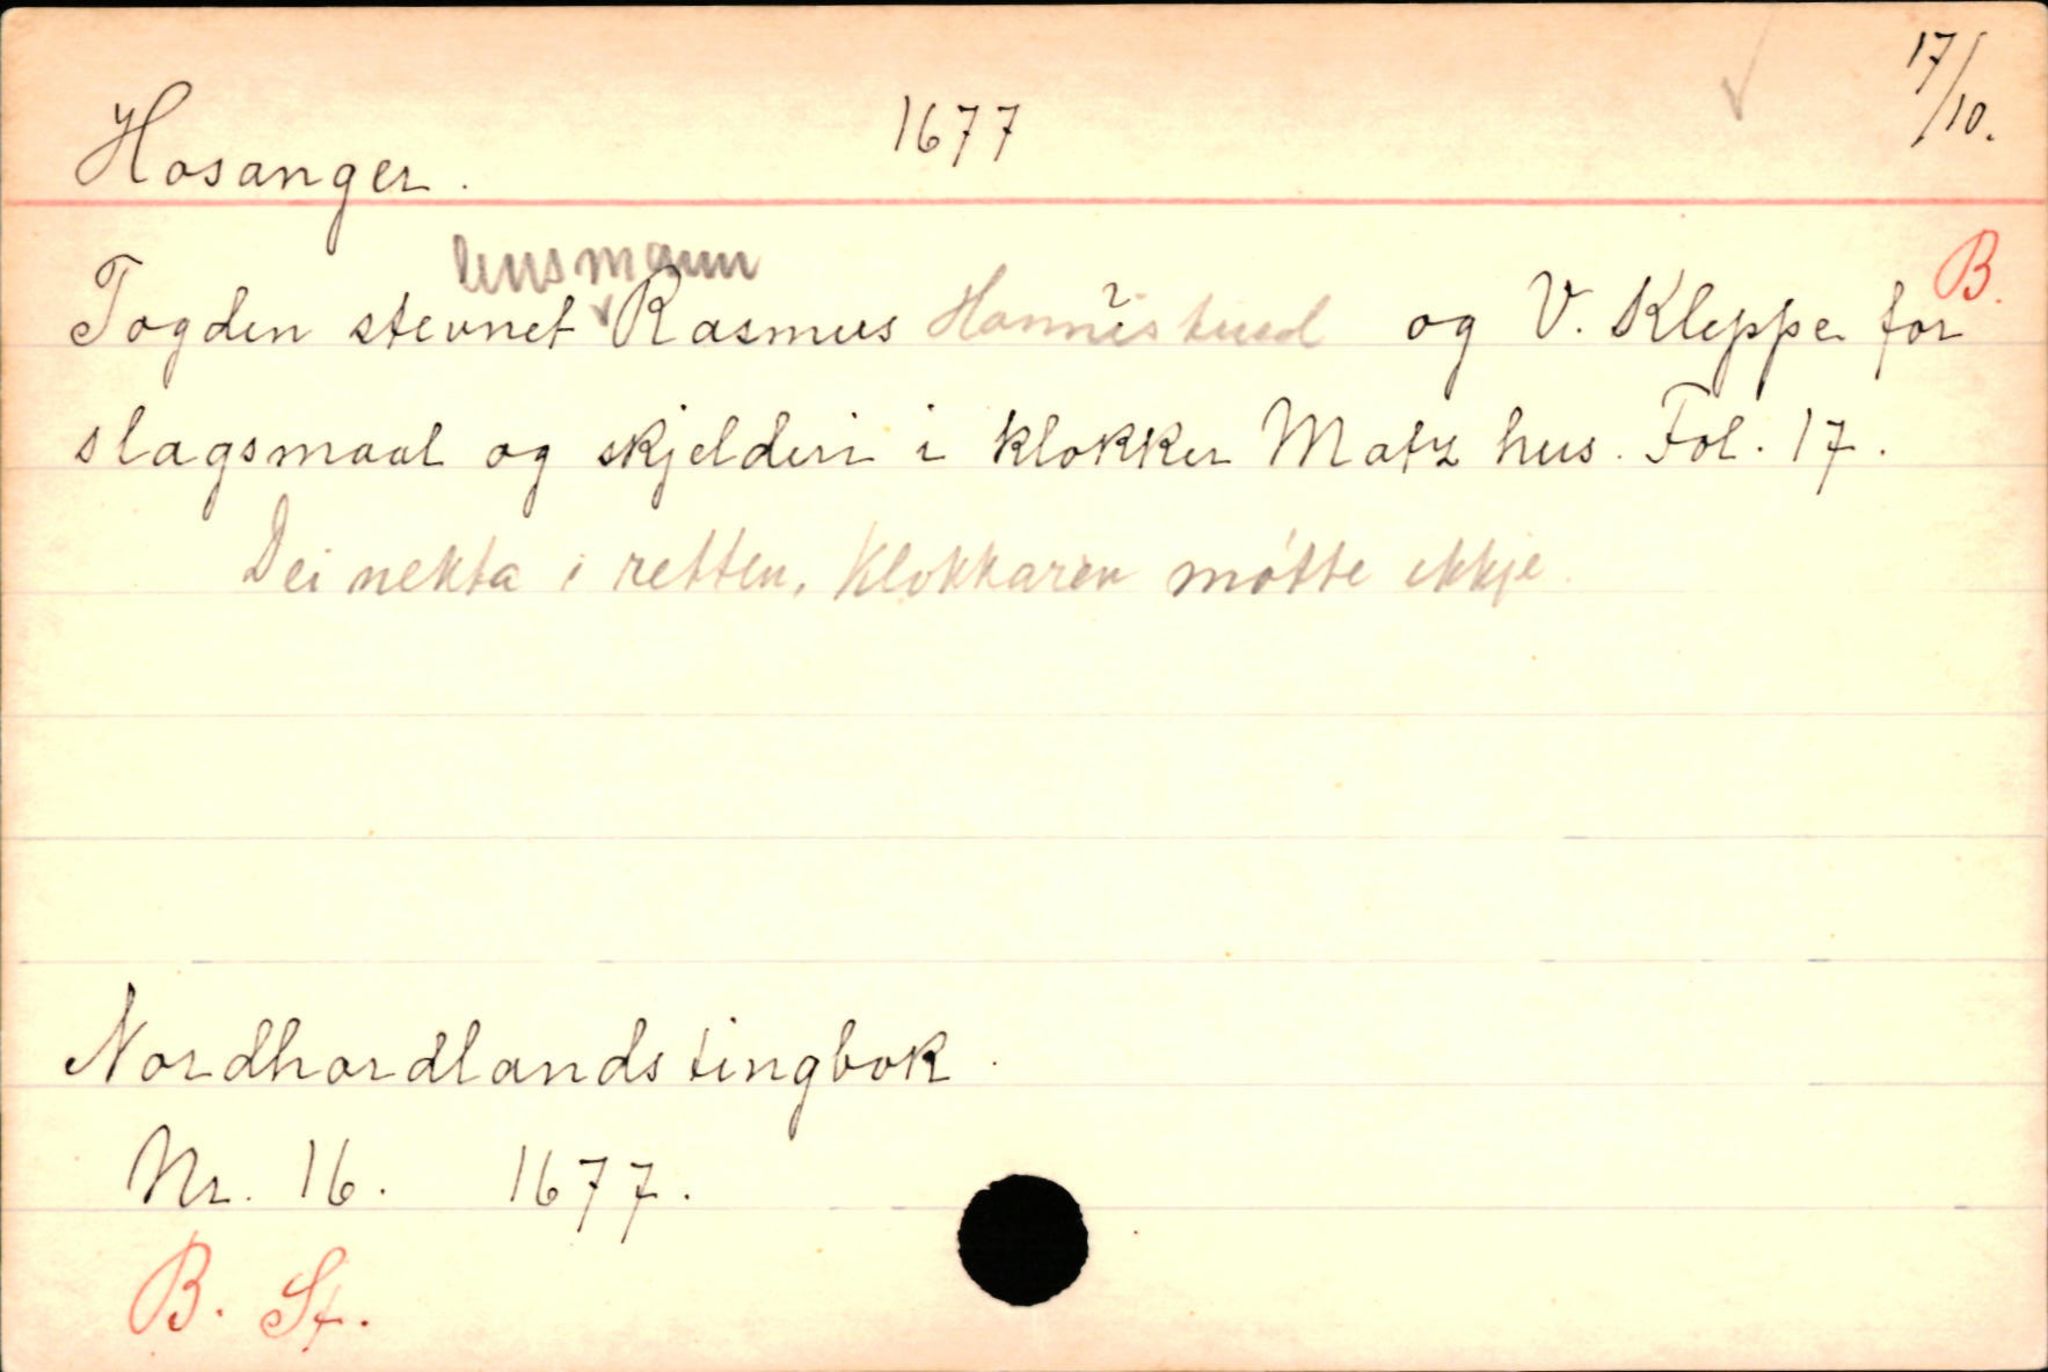 17/10.
Hosanger. 1677
B.
lensmann
Fogden stevnet Rasmus Hannistvedt og V. Kleppe for
slagsmaal og skjelderi i klokker Matz hus. Fol. 17.
Dei nekta i retten, Klokkaren møtte ikkje.
Nordhordlands tingbok.
Nr. 16. 1677.
B. St.